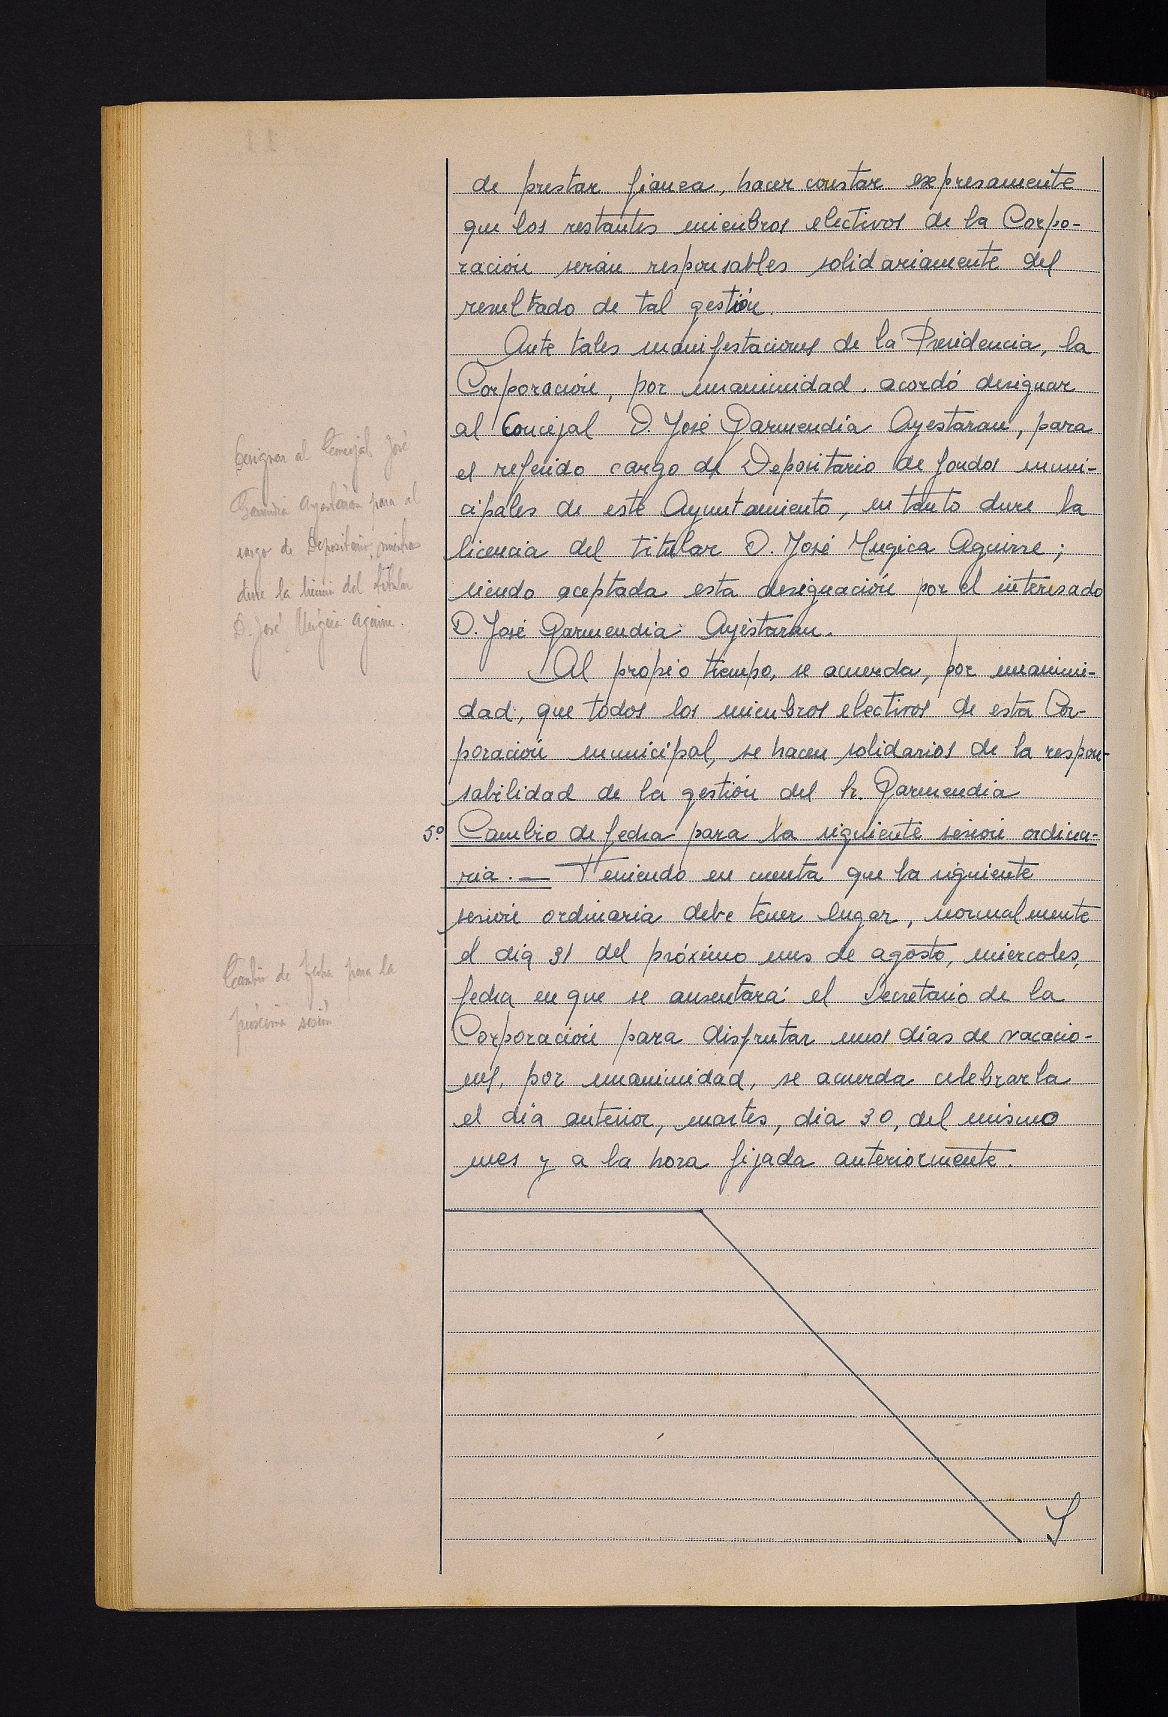 de prestar fianza, hacer constar expresamente
que los restantes miembros electivos de la Corpo-
ración serán responsables solidariamente del
resultado de tal gestión.
Ante tales manifestaciones de la Presidencia, la
Corporación, por unanimidad, acordó designar
al Concejal D. José Garmendia Ayestaran, para
el referido cargo de Depositario de fondos muni-
cipales de este Ayuntamiento, en tanto dure la
licencia del titular D. José Mugica Aguirre;
siendo aceptada esta designación por el interesado
D. José Garmendia Ayestaran.
Al propio tiempo, se acuerda, por unanimi-
dad, que todos los miembros electivos de esta Cor-
poración municipal, se hacen solidarios de la respon-
sabilidad de la gestión del Sr. Garmendia
5º Cambio de fecha para la siguiente sesión ordina-
ria.— Teniendo en cuenta que la siguiente
sesión ordinaria debe tener lugar, normalmente
el día 31 del próximo mes de agosto, miercoles,
fecha en que se ausentará el Secretario de la
Corporación para disfrutar unos días de vacacio-
nes, por unanimidad, se acuerda celebrarla
el día anterior, martes, día 30, del mismo
mes y a la hora fijada anteriormente.
Designar al Concejal José
Garmendia Ayestaran para el
cargo de Depositario, mientras
dure la licencia del titular
D. José Múgica Aguirre.
Cambio de fecha para la
próxima sesión